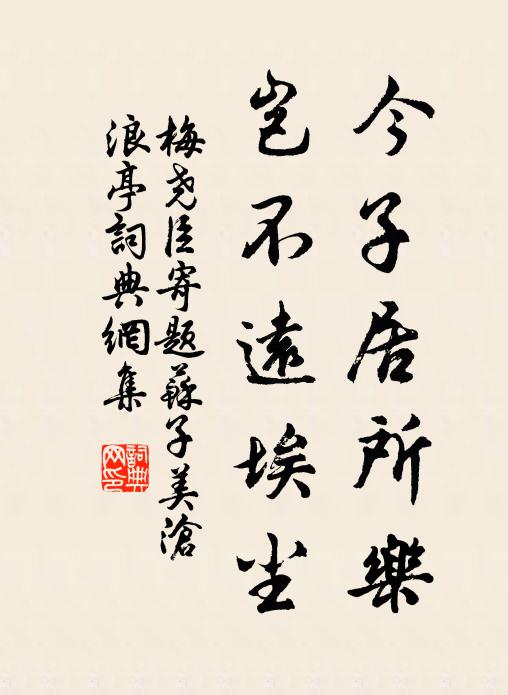 今子居所樂
豈不遠埃尘
梅尧臣寄題蘇子美滄
浪亭詞典網集
詞典网印